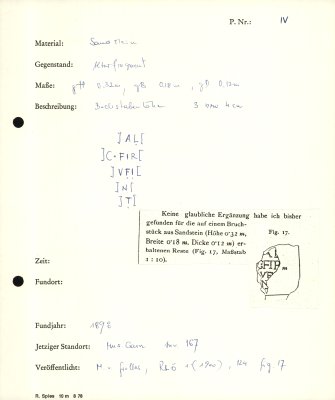 P. Nr.: IV
Material: Sandstein
Gegenstand: Altarfragment
Maße: gH 0.32m, gB 0.18m, gD 0.12m
Beschreibung: Buchstabenhöhe 3 4 cm
]AL[
]C•FIR[
]VFI[
]N[
]T[
Keine glaubliche Ergänzung habe ich bisher
gefunden für die auf einem Bruch-
stück aus Sandstein (Höhe 0·32 m,
Breite 0·18 m, Dicke 0·12 m) er-
haltenen Reste (Fig. 17, Maßstab
1 : 10).
Fig. 17.
Zeit:
Fundort:
Fundjahr: 1898
Jetziger Standort: Mus. 167
Veröffentlicht: 1 (1900), 124 fig 17
R. Spies 10 m 8 78